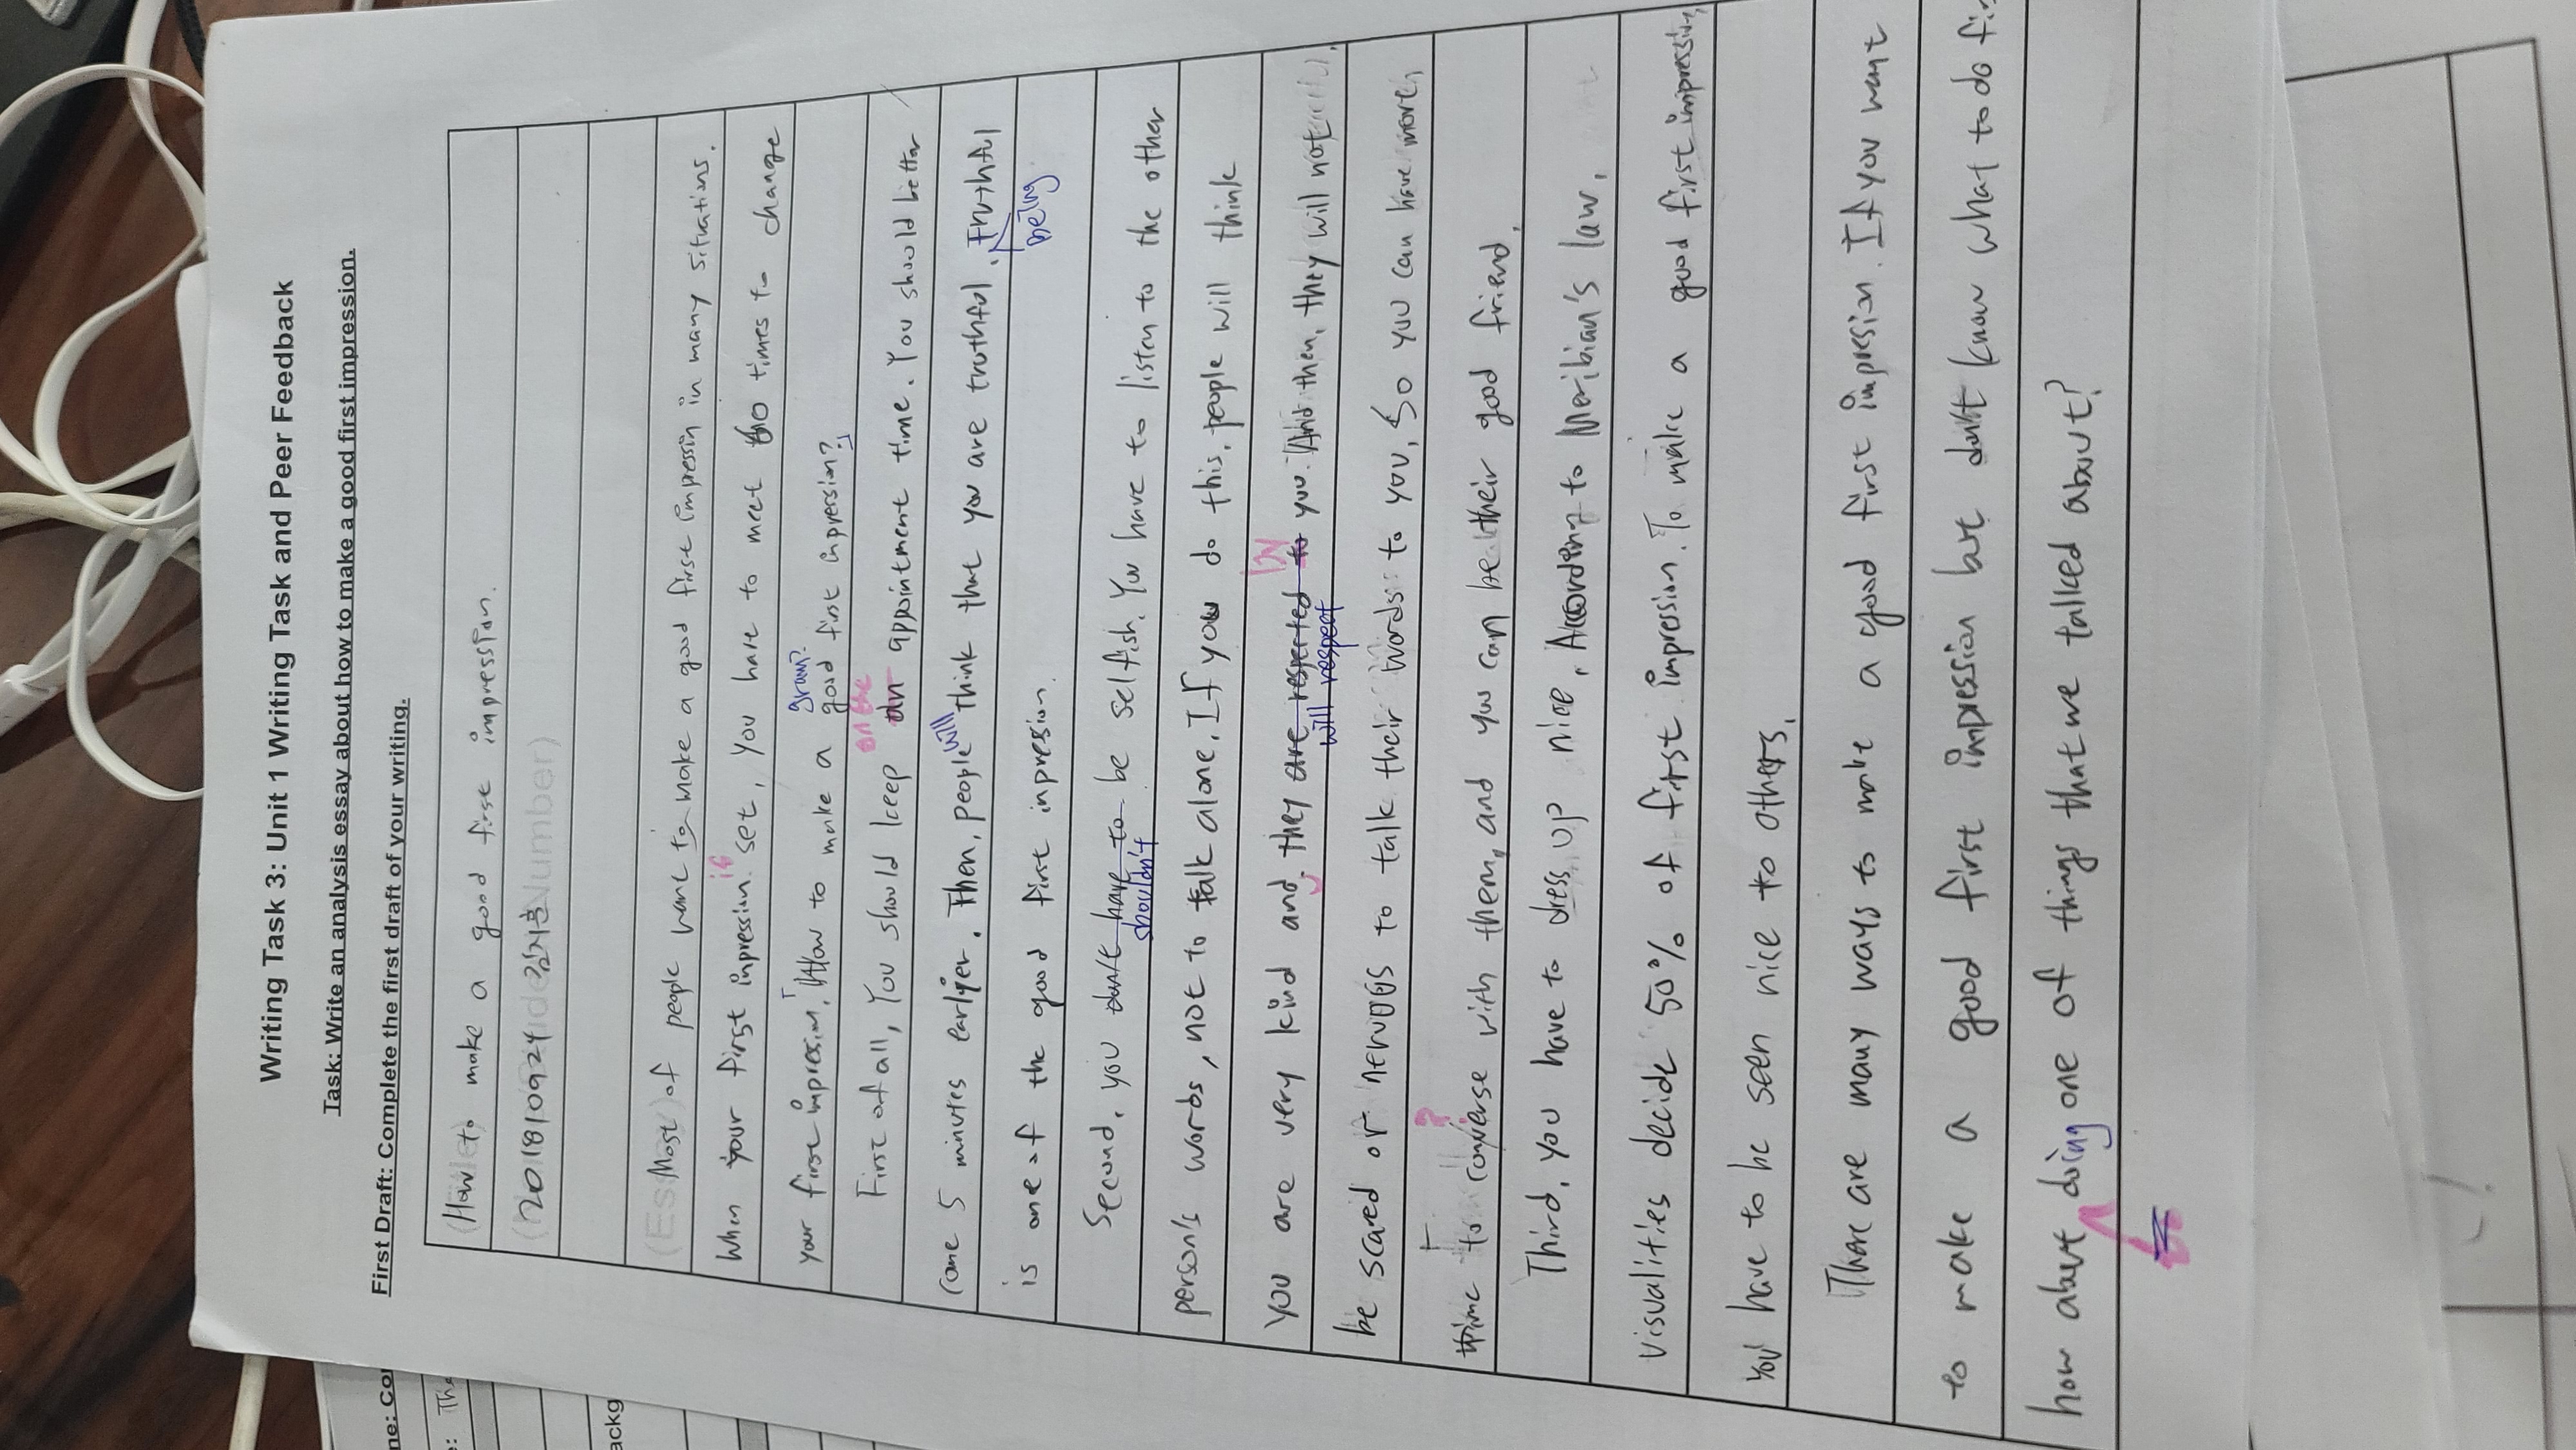 Writing Task 3: Unit 1 Writing Task and Peer Feedback
Task: Write an analysis essay about how to make a good first impression.
First Draft: Complete the first draft of your writing.
How to make a good first impression.
201810924
Most of people want to make a good first impression in many situations.
When your first impression is set, you have to meet 60 times to change
your first impression, 「How to make a good first impression?」
gram?
First of all, You should keep an appointment time. You should better
on the
come 5 minutes earlier. Then, people will think that you are truthful. Truthful
being
is one of the good first inpression.
Second, you don't have to be selfish. You have to listen to the other
shouldn't
person's words, not to talk alone. If you do this, people will think
you are very kind and, they are respected to you. And then, they will not
by
will respect
be scared or nervous to talk their words to you, So you can have more
time to converse with them, and you can be their good friend.
?
Third, you have to dress up nice, According to Meribian's law,
Visualities decide 50% of first impression. To make a good first impression,
you have to be seen nice to others.
There are many ways to make a good first impression. If you want
to make a good first impression but don't know what to do
how about doing one of things that we talked about?
ne: Co
: The
ackg